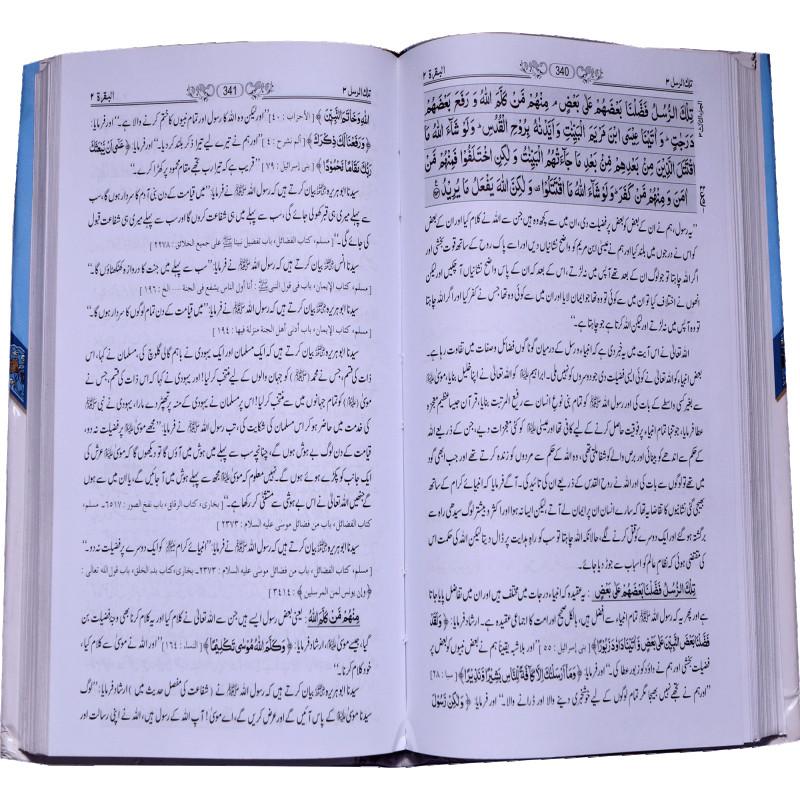 تلك الرسل ۳
340
البقرة ۲
تِلْكَ الرُّسُلُ فَضَّلْنَا بَعْضَهُمْ عَلٰى بَعْضٍ ۘ مِنْهُمْ مَّنْ كَلَّمَ اللّٰهُ وَ رَفَعَ بَعْضَهُمْ
دَرَجٰتٍ ؕ وَ اٰتَيْنَا عِيْسَى ابْنَ مَرْيَمَ الْبَيِّنٰتِ وَ اَيَّدْنٰهُ بِرُوْحِ الْقُدُسِ ؕ وَ لَوْ شَآءَ اللّٰهُ مَا
اقْتَتَلَ الَّذِيْنَ مِنْۢ بَعْدِهِمْ مِّنْۢ بَعْدِ مَا جَآءَتْهُمُ الْبَيِّنٰتُ وَ لٰكِنِ اخْتَلَفُوْا فَمِنْهُمْ مَّنْ
اٰمَنَ وَ مِنْهُمْ مَّنْ كَفَرَ ؕ وَ لَوْ شَآءَ اللّٰهُ مَا اقْتَتَلُوْا ۫ وَ لٰكِنَّ اللّٰهَ يَفْعَلُ مَا يُرِيْدُ
”یہ رسول، ہم نے ان کے بعض کو بعض پر فضیلت دی، ان میں سے کچھ وہ ہیں جن سے اللہ نے کلام کیا اور ان کے بعض
کو اس نے درجوں میں بلند کیا اور ہم نے عیسیٰ ابن مریم کو واضح نشانیاں دیں اور اسے پاک روح کے ساتھ قوت بخشی اور
اگر اللہ چاہتا تو جو لوگ ان کے بعد تھے آپس میں نہ لڑتے، اس کے بعد کہ ان کے پاس واضح نشانیاں آ چکیں اور لیکن
انھوں نے اختلاف کیا تو ان میں سے کوئی تو وہ تھا جو ایمان لایا اور ان میں سے کوئی وہ تھا جس نے کفر کیا اور اگر اللہ چاہتا
تو وہ آپس میں نہ لڑتے اور لیکن اللہ کرتا ہے جو چاہتا ہے۔“
اللہ تعالیٰ نے اس آیت میں یہ خبر دی ہے کہ انبیاء و رسل کے درمیان گوناگوں فضائل و صفات میں تفاوت رہا ہے۔
بعض انبیاء کو اللہ تعالیٰ نے کوئی ایسی فضیلت دی جو دوسروں کو نہیں ملی۔ ابراہیم علیہ السلام کو اللہ تعالیٰ نے اپنا خلیل بنایا، موسیٰ
سے بغیر کسی واسطے کے بات کی اور رسول اللہ ﷺ کو تمام بنی نوع انسان سے رفیع المرتبت بنایا، قرآن جیسا عظیم معجزہ
عطا فرمایا، جو تنہا تمام انبیاء پر فوقیت حاصل کرنے کے لیے کافی تھا اور عیسیٰ کو کئی معجزات دیے، جن کے ذریعے اللہ
کے حکم سے اندھے کو بینائی اور برص والے کو شفا ملتی تھی، وہ اللہ کے حکم سے مردوں کو زندہ کرتے تھے اور جب ابھی گود
میں تھے تو لوگوں سے بات کی اور اللہ نے روح القدس کے ذریعے ان کی تائید کی۔ آگے فرمایا کہ انبیائے کرام کے ساتھ
بھیجی گئی نشانیوں کا تقاضا یہ تھا کہ سارے انسان ان پر ایمان لے آتے، لیکن ایسا نہ ہوا اور اکثر و بیشتر لوگ سیدھی راہ سے
برگشتہ ہو گئے اور ایک دوسرے کو قتل کرنے لگے، حالانکہ اللہ چاہتا تو سب کو راہ ہدایت پر ڈال دیتا لیکن اللہ کی حکمت اس
کی مقتضی ہوئی کہ نظام عالم کو اسباب سے جوڑ دیا جائے۔
تِلْكَ الرُّسُلُ فَضَّلْنَا بَعْضَهُمْ عَلٰى بَعْضٍ : یہ عقیدہ کہ انبیاء درجات میں مختلف ہیں اور ان میں تفاضل پایا جاتا
ہے اور پھر یہ کہ رسول اللہ ﷺ تمام انبیاء سے افضل ہیں، بالکل صحیح اور امت کا اجماعی عقیدہ ہے۔ ارشاد فرمایا: ﴿ وَلَقَدْ
فَضَّلْنَا بَعْضَ النَّبِيّٖنَ عَلٰى بَعْضٍ وَّ اٰتَيْنَا دَاوٗدَ زَبُوْرًا ﴾ [ بنی إسرائیل : ٥٥ ] ”اور بلاشبہ یقیناً ہم نے بعض نبیوں کو بعض پر
فضیلت بخشی اور ہم نے داؤد کو زبور عطا کی۔“ اور فرمایا: ﴿ وَ مَاۤ اَرْسَلْنٰكَ اِلَّا كَآفَّةً لِّلنَّاسِ بَشِيْرًا وَّ نَذِيْرًا ﴾ [ سبا : ٢٨ ]
”اور ہم نے تجھے نہیں بھیجا مگر تمام لوگوں کے لیے خوشخبری دینے والا اور ڈرانے والا۔“ اور فرمایا: ﴿ وَ لٰكِنْ رَّسُوْلَ
تلك الرسل ۳
341
البقرة ۲
اللّٰهِ وَ خَاتَمَ النَّبِيّٖنَ ﴾ [ الأحزاب : ٤٠ ] ”اور لیکن وہ اللہ کا رسول اور تمام نبیوں کا ختم کرنے والا ہے۔“ اور فرمایا:
﴿ وَ رَفَعْنَا لَكَ ذِكْرَكَ ﴾ [ ألم نشرح : ٤ ] ”اور ہم نے تیرے لیے تیرا ذکر بلند کر دیا۔“ اور فرمایا: ﴿ عَسٰۤى اَنْ يَّبْعَثَكَ
رَبُّكَ مَقَامًا مَّحْمُوْدًا ﴾ [ بنی إسرائیل : ٧٩ ] ”قریب ہے کہ تیرا رب تجھے مقام محمود پر کھڑا کرے۔“
سیدنا ابوہریرہ بیان کرتے ہیں کہ رسول اللہ ﷺ نے فرمایا: ”میں قیامت کے دن بنی آدم کا سردار ہوں گا، سب
سے پہلے میری ہی قبر کھولی جائے گی، سب سے پہلے میں ہی شفاعت کروں گا اور سب سے پہلے میری ہی شفاعت قبول
کی جائے گی۔“ [ مسلم، کتاب الفضائل، باب تفضیل نبینا ﷺ علی جمیع الخلائق : ٢٢٧٨ ]
سیدنا انس بیان کرتے ہیں کہ رسول اللہ ﷺ نے فرمایا: ”سب سے پہلے میں جنت کا دروازہ کھٹکھٹاؤں گا۔“
[ مسلم، کتاب الإیمان، باب فی قول النبی ﷺ : أنا أول الناس یشفع فی الجنة ... الخ : ١٩٦ ]
سیدنا ابوہریرہ بیان کرتے ہیں کہ رسول اللہ ﷺ نے فرمایا: ”میں قیامت کے دن تمام لوگوں کا سردار ہوں گا۔“
[ مسلم، کتاب الإیمان، باب أدنی أهل الجنة منزلة فیها : ١٩٤ ]
سیدنا ابوہریرہ بیان کرتے ہیں کہ ایک مسلمان اور ایک یہودی نے باہم گالی گلوچ کی، مسلمان نے کہا، اس
ذات کی قسم، جس نے محمد (ﷺ) کو جہان والوں کے لیے منتخب کر لیا! اور یہودی نے کہا کہ اس ذات کی قسم، جس نے
موسیٰ کو تمام جہانوں میں سے منتخب کر لیا! اس پر مسلمان نے یہودی کے منہ پر تھپڑ دے مارا، یہودی نے نبی ﷺ
کی خدمت میں حاضر ہو کر اس مسلمان کی شکایت کی، تب آپ ﷺ نے فرمایا: ”مجھے موسیٰ پر فضیلت نہ دو،
قیامت کے دن لوگ بے ہوش ہوں گے، چنانچہ سب سے پہلے میں ہوش میں آؤں گا تو دیکھوں گا کہ موسیٰ عرش کی
ایک جانب کو پکڑے ہوئے ہوں گے۔ مجھے نہیں معلوم کہ موسیٰ مجھ سے پہلے ہوش میں آ جائیں گے، یا ان میں سے ہوں
گے جنھیں اللہ تعالیٰ نے اس بے ہوشی سے مستثنیٰ کر رکھا ہے۔“ [ بخاری، کتاب الرقاق، باب نفخ الصور : ٦٥١٧۔ مسلم،
کتاب الفضائل، باب من فضائل موسٰی علیه السلام : ٢٣٧٣ ]
سیدنا ابوہریرہ بیان کرتے ہیں کہ رسول اللہ ﷺ نے فرمایا: ”انبیائے کرام کو ایک دوسرے پر فضیلت نہ دو۔“
[ مسلم، کتاب الفضائل، باب من فضائل موسٰی علیه السلام : ٢٣٧٣۔ بخاری، کتاب بدء الخلق، باب قول الله تعالی :
﴿وإن یونس لمن المرسلین﴾ : ٣٤١٤ ]
مِنْهُمْ مَّنْ كَلَّمَ اللّٰهُ : یعنی بعض رسول ایسے ہیں جن سے اللہ تعالیٰ نے کلام کیا اور یہ کلام کرنا بھی وجہ فضیلت بن
گیا، جیسے موسیٰ، ارشاد فرمایا: ﴿ وَ كَلَّمَ اللّٰهُ مُوْسٰى تَكْلِيْمًا ﴾ [ النساء : ١٦٤ ] ”اور اللہ نے موسیٰ سے کلام کیا،
خود کلام کرنا۔“
سیدنا ابوہریرہ بیان کرتے ہیں کہ رسول اللہ ﷺ نے ( شفاعت کی مفصل حدیث میں ) ارشاد فرمایا: ”لوگ
موسیٰ کے پاس آئیں گے اور عرض کریں گے، اے موسیٰ! آپ اللہ کے رسول ہیں، اللہ نے اپنی رسالت اور